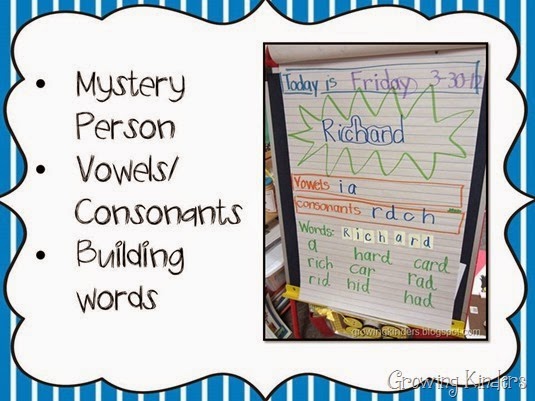 • Mystery
Person
• Vowels/
Consonants
• Building
words
Today is Friday 3-30-12
Richard
Vowels i a
consonants r d c h
Words: R i c h a r d
a hard card
rich car rad
rid hid had
growingkinders.blogspot.com
Growing Kinders